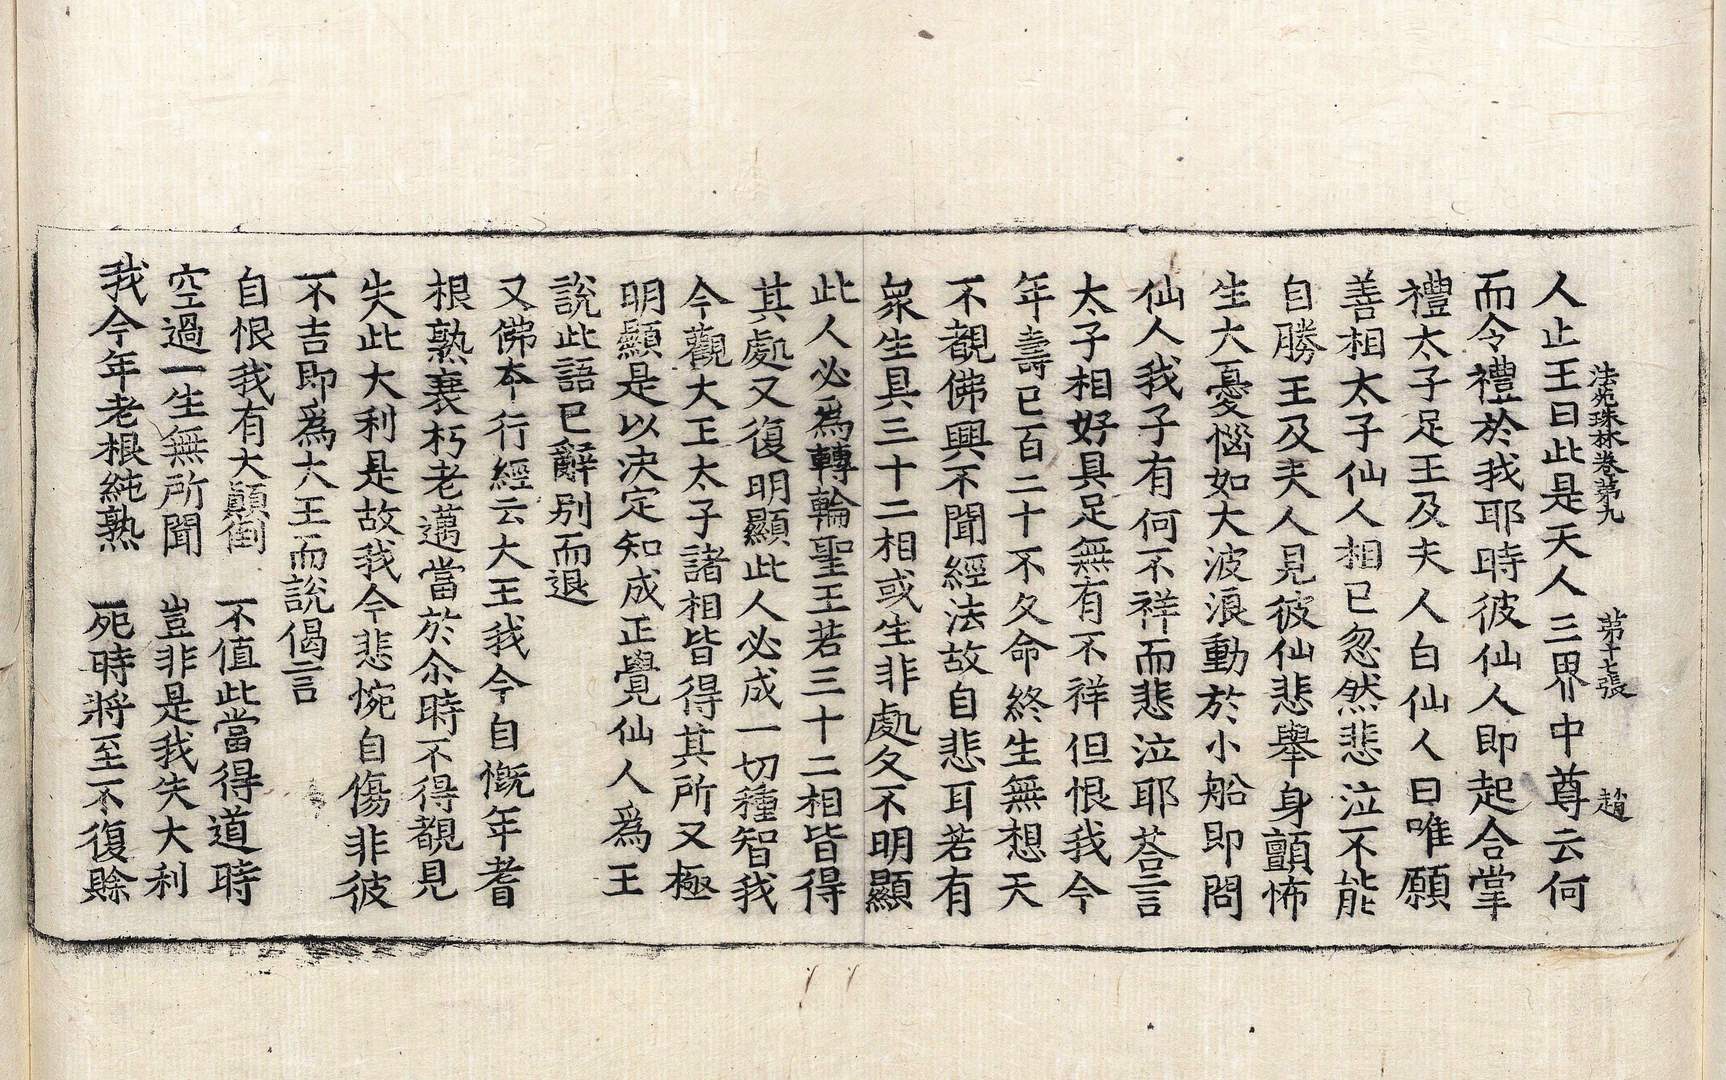 法苑珠林卷第九　第十七張　趙
人止王曰此是天人三界中尊云何
而令禮於我耶時彼仙人即起合掌
禮太子足王及夫人白仙人曰唯願
善相太子仙人相已忽然悲泣不能
自勝王及夫人見彼仙悲舉身顫怖
生大憂惱如大波浪動於小船即問
仙人我子有何不祥而悲泣耶荅言
太子相好具足無有不祥但恨我今
年壽已百二十不久命終生無想天
不覩佛興不聞經法故自悲耳若有
衆生具三十二相或生非處又不明顯
此人必爲轉輪聖王若三十二相皆得
其處又復明顯此人必成一切種智我
今觀大王太子諸相皆得其所又極
明顯是以决定知成正覺仙人爲王
說此語已辭别而退
又佛本行經云大王我今自慨年耆
根熟衰朽老邁當於余時不得覩見
失此大利是故我今悲惋自傷非彼
不吉即爲大王而說偈言
自恨我有大顚倒　不值此當得道時
空過一生無所聞　豈非是我失大利
我今年老根純熟　死時將至不復賒